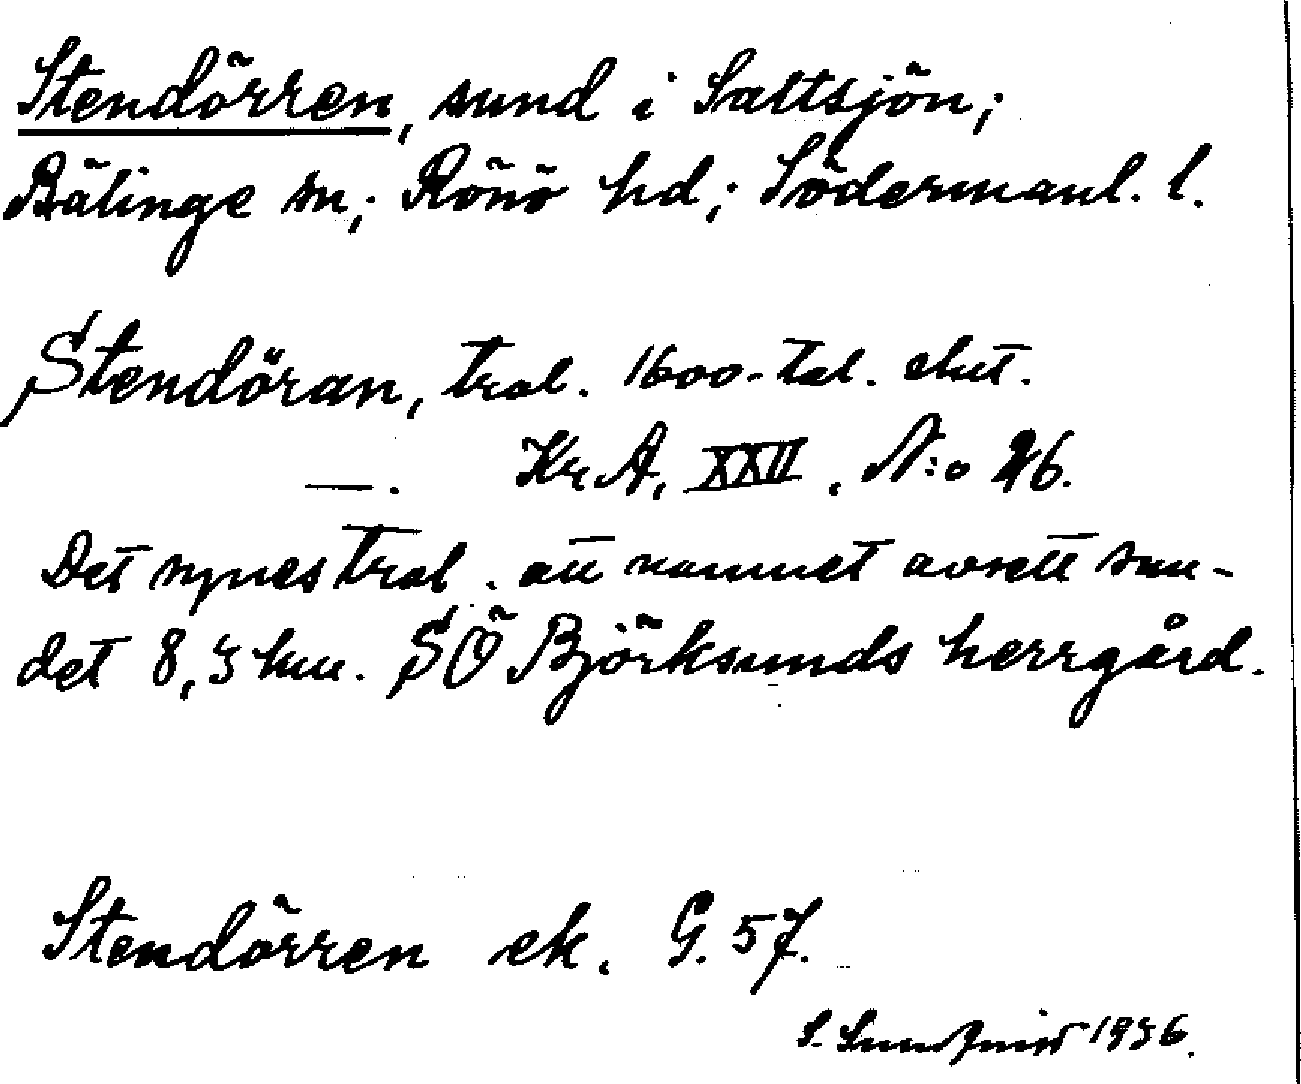 Stendörren, sund i Saltsjön;
Bälinge sn; Rönö hd; Södermanl. l.
Stendöran, trol. 1600-tal. chut.
—. Kr.A, XXII, N:o 26.
Det synes trol. att namnet avsett sun-
det 8,5 km. SÖ Björksunds herrgård.
Stendörren ek. G. 57.
S. Sundquist 1936.